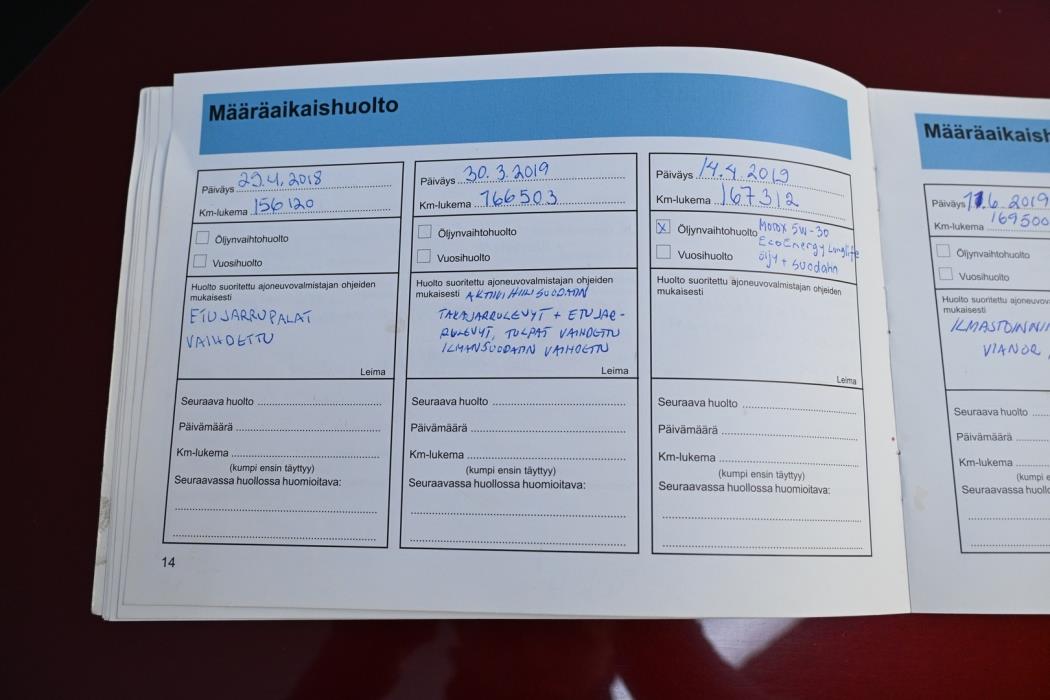 Määräaikaishuolto
Päiväys 29.4.2018
Km-lukema 156120
Öljynvaihtohuolto
Vuosihuolto
Huolto suoritettu ajoneuvovalmistajan ohjeiden
mukaisesti
ETUJARRUPALAT
VAIHDETTU
Leima
Seuraava huolto
Päivämäärä
Km-lukema
(kumpi ensin täyttyy)
Seuraavassa huollossa huomioitava:
14
Päiväys 30.3.2019
Km-lukema 166503
Öljynvaihtohuolto
Vuosihuolto
Huolto suoritettu ajoneuvovalmistajan ohjeiden
mukaisesti AKTIIVIHIILISUODATIN
TAKAJARRULEVYT + ETUJAR-
RULEVYT, TULPAT VAIHDETTU
ILMANSUODATIN VAIHDETTU
Leima
Seuraava huolto
Päivämäärä
Km-lukema
(kumpi ensin täyttyy)
Seuraavassa huollossa huomioitava:
Päiväys 14.4.2019
Km-lukema 167312
X Öljynvaihtohuolto Motox 5W-30
EcoEnergy Longlife
Vuosihuolto öljy + suodatin
Huolto suoritettu ajoneuvovalmistajan ohjeiden
mukaisesti
Leima
Seuraava huolto
Päivämäärä
Km-lukema
(kumpi ensin täyttyy)
Seuraavassa huollossa huomioitava:
Määräaikaish
Päiväys 6.2019
Km-lukema 169500
Öljynvaihtohuolto
Vuosihuolto
Huolto suoritettu ajoneuvov
mukaisesti
ILMASTOINNIN
VIANOR
Seuraava huolto
Päivämäärä
Km-lukema
(kumpi e
Seuraavassa huollo